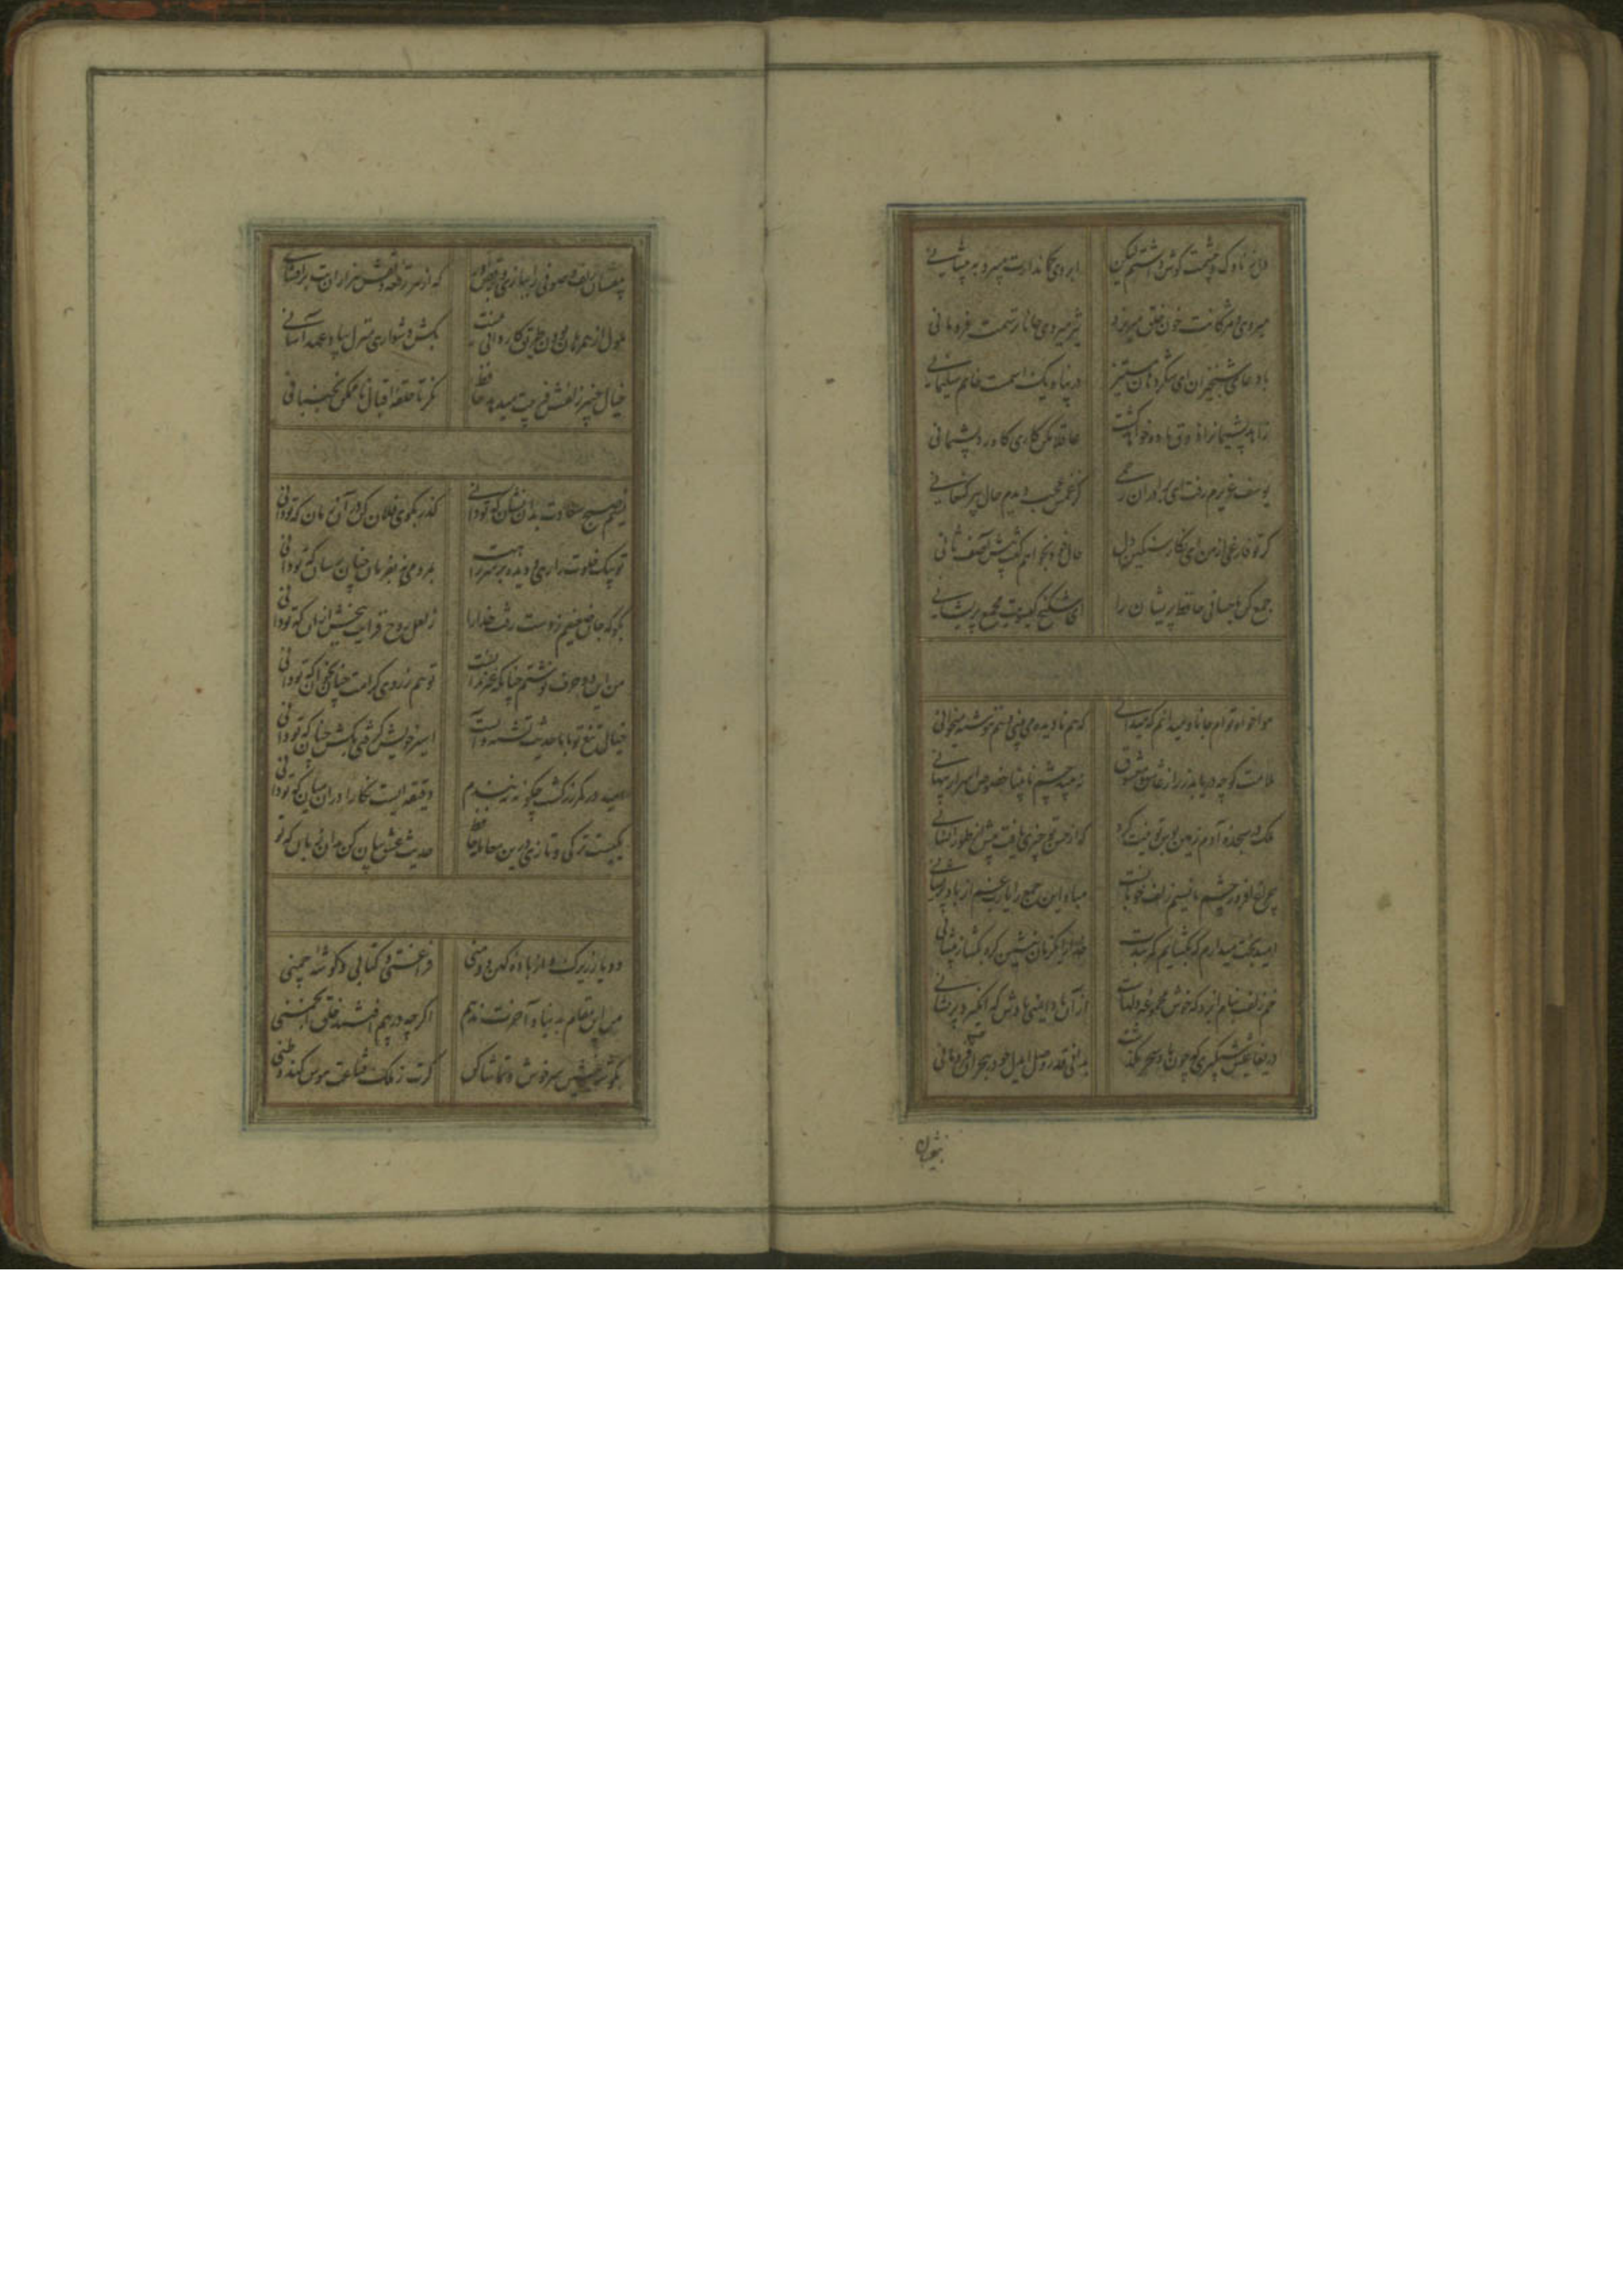 دل ز ناوک چشمت گوش داشتم لیکن ابروی کماندارت میبرد به پیشانی
میروی و مژگانت خون خلق میریزد تیز میروی جانا ترسمت فرو مانی
با دعای شبخیزان ای شکردهان مستیز در پناه یک اسمست خاتم سلیمانی
زاهد پشیمان را ذوق باده خواهد کشت عاقلا مکن کاری کاورد پشیمانی
یوسف عزیزم رفت ای برادران رحمی کز غمش عجب دیدم حال پیر کنعانی
گر تو فارغی از من ای نگار سنگین دل حال خود بخواهم گفت پیش آصف ثانی
جمع کن باحسانی حافظ پریشان را ای شکنج گیسویت مجمع پریشانی
هواخواه توام جانا و میدانم که میدانی که هم نادیده می بینی و هم ننوشته میخوانی
ملامت گو چه دریابد ز راز عاشق و معشوق نه بیند چشم نابینا خصوص اسرار پنهانی
ملک در سجده آدم زمین بوس تو نیت کرد که در حسن تو چیزی یافت بیش از طور انسانی
چراغ افروز چشم ما نسیم زلف خوبانست مباد این جمع را یارب غم از باد پریشانی
امید از بخت میدارم که بگشایم کمربندت خدا را ای فلک با من گره بگشا ز پیشانی
خم زلفت بنام ایزد که خوش مجموعه دلهاست از آن باد ایمنی بادش که انگیزد پریشانی
دریغا عیش شبگیری که چون باد سحر بگذشت بدانی قدر وصل ای دل چو در هجران فرو مانی
بیفشان
بیفشان زلف و صوفی را ببازی و رقص آور که از هر رقعه دلقش هزاران بت برافشانی
ملول از همرهان بودن طریق کاردانی نیست بکش دشواری منزل بیاد عهد آسانی
خیال چنبر زلفش فریبت میدهد حافظ نگر تا حلقه اقبال ناممکن نجنبانی
نسیم صبح سعادت بدان نشان که تو دانی گذر بکوی فلان کن در آن زمان که تو دانی
تو پیک خلوت رازی و دیده بر سر راهت بمردمی نه بفرمان چنان بران که تو دانی
بگو که جان ضعیفم ز دست رفت خدا را ز لعل روح فزایت ببخش از آن که تو دانی
من این دو حرف نوشتم چنانکه غیر ندانست تو هم ز روی کرامت چنان بخوان که تو دانی
خیال تیغ تو با ما حدیث تشنه و آبست اسیر خویش گرفتی بکش چنان که تو دانی
امید در کمر زرکشت چگونه نبندم دقیقه ایست نگارا در آن میان که تو دانی
یکیست ترکی و تازی درین معامله حافظ حدیث عشق بیان کن بدان زبان که تو
دو یار زیرک و از باده کهن دو منی فراغتی و کتابی و گوشه چمنی
من این مقام به دنیا و آخرت ندهم اگر چه در پیم افتند خلق انجمنی
بگوشه بنشین سرخوش و تماشا کن گرت ز ملک قناعت هوس کند وطنی